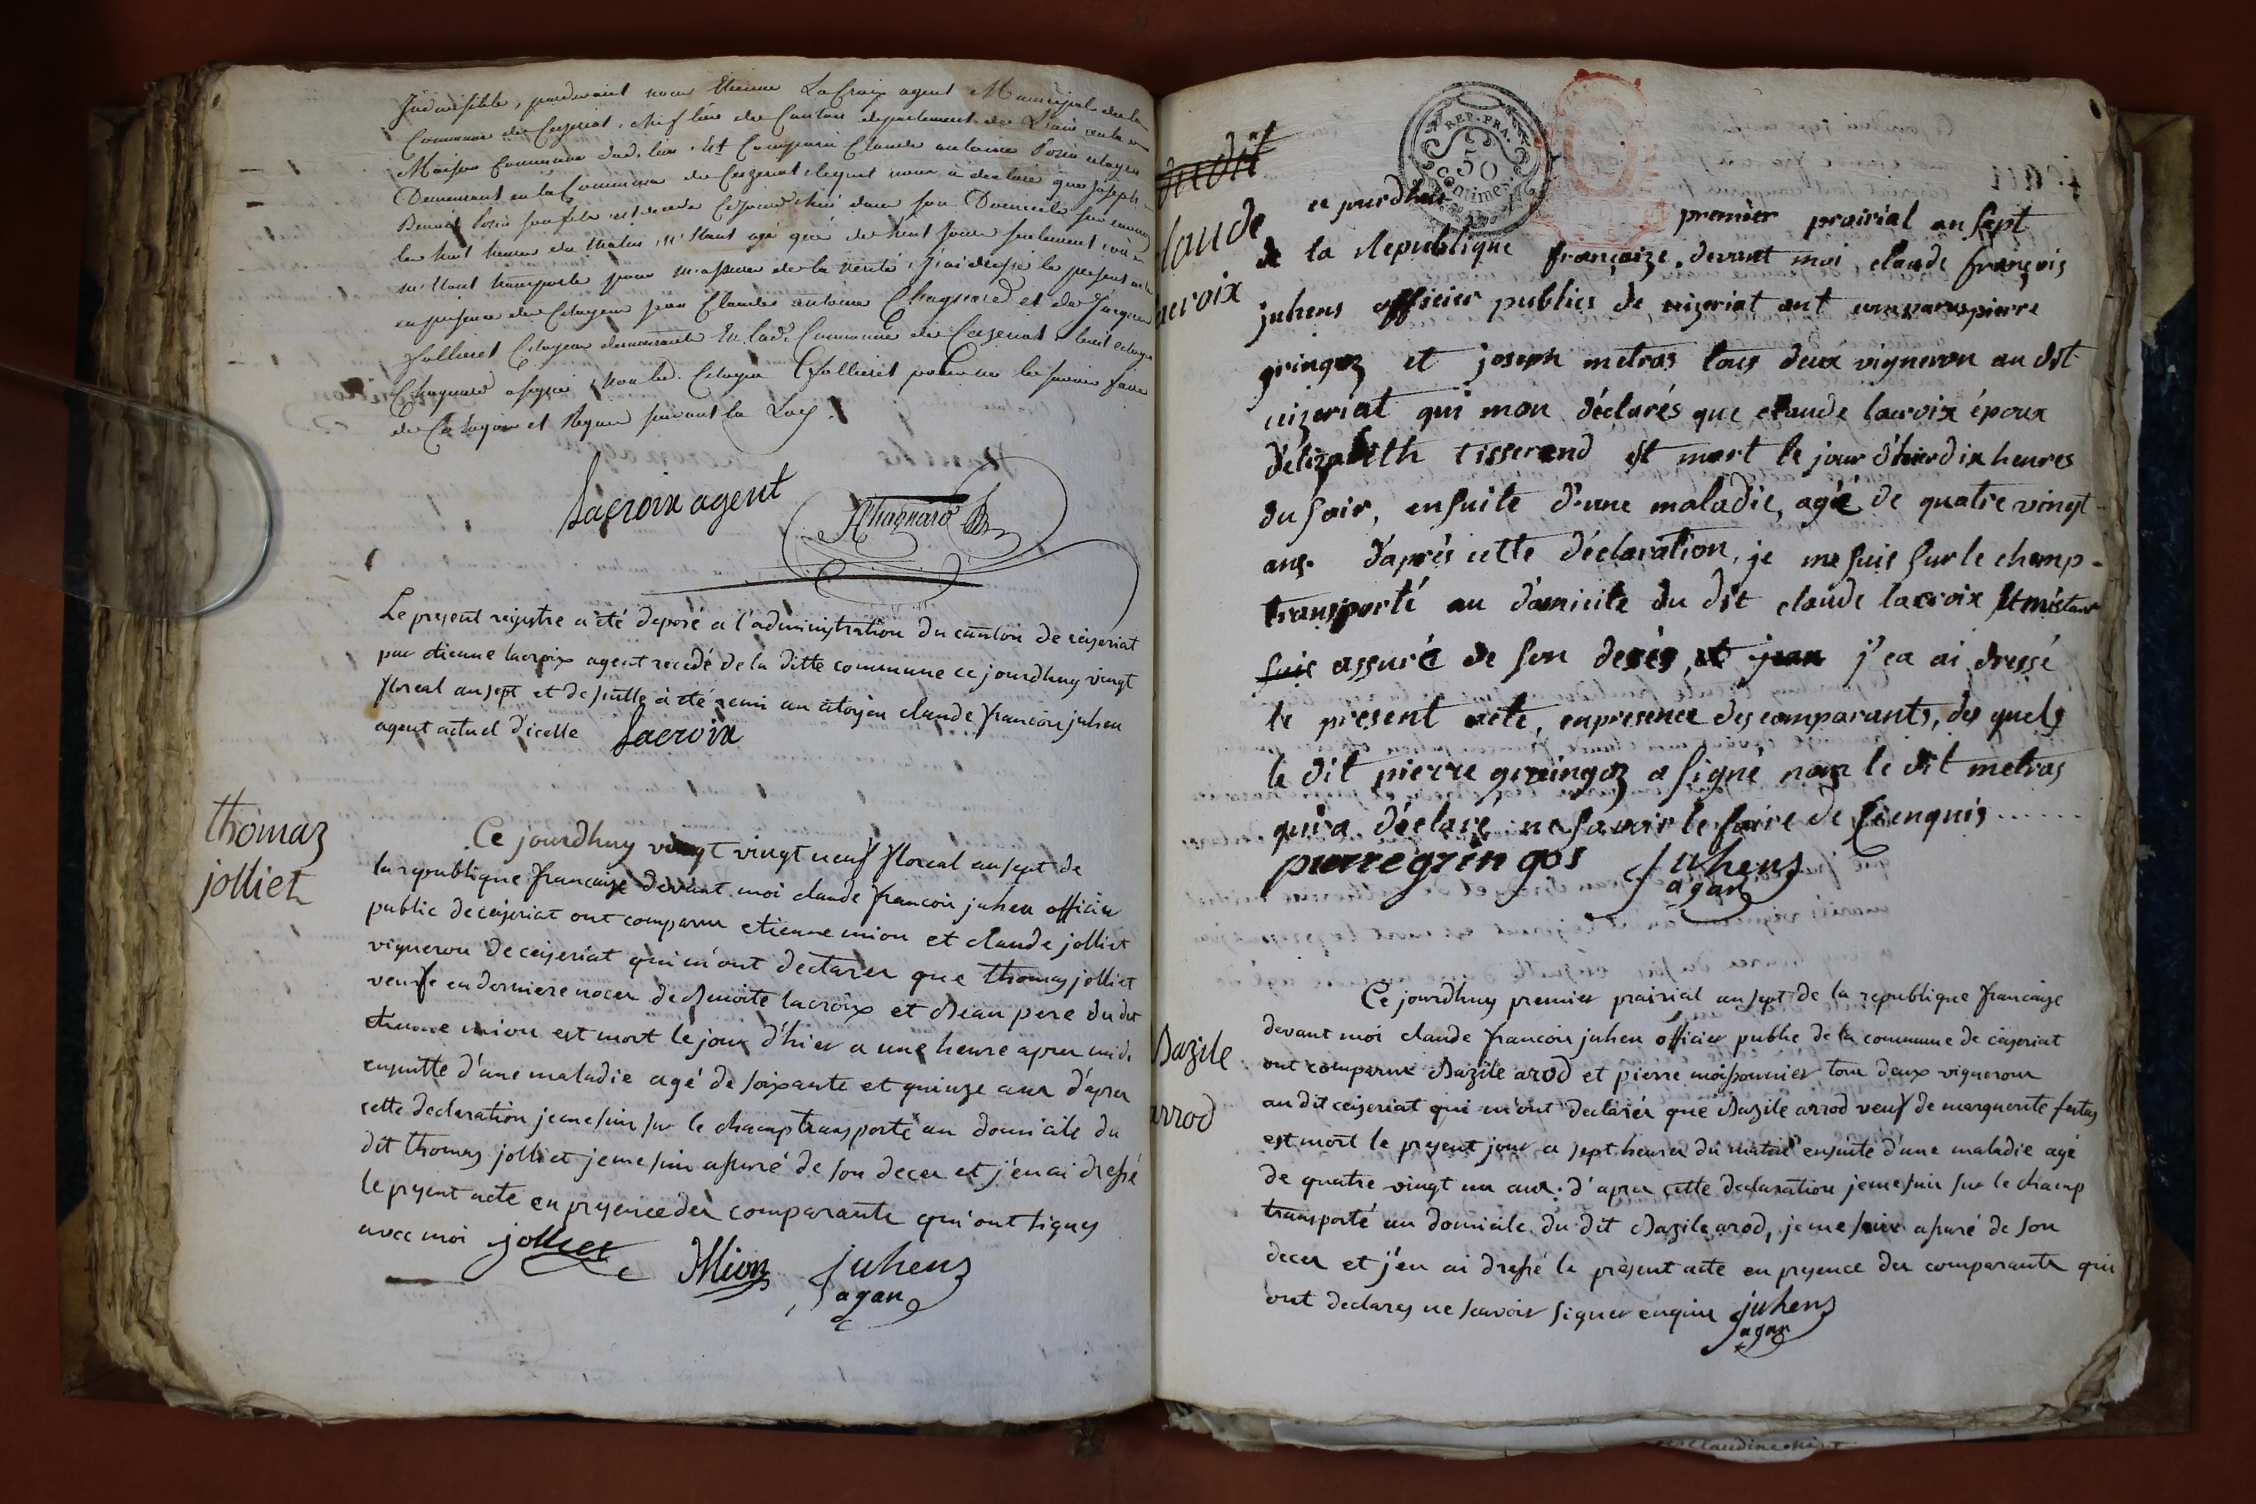 Indivisible, pardevant nous Etienne LaCroix agent Municipal de la
Commune de Ceyzeriat, chef lieu de Canton departement de L'ain en la
Maison Commune dud. lieu est Comparu Claude antoine citoyen
Demeurant en la Commune de Ceyzeriat lequel nous a declaré que joseph
Benoit son fils est decedé Cejourd'hui dans son Domicile
les huit heures du Matin, n'étant agé que de huit jours seulement, où
m'étant transporté pour m'assurer de la verité, j'ai dressé le present acte
en presence des Citoyens jean Claude antoine Chagnard et de Jacques
jollliet Citoyens demeurants En lad. Commune de Ceyzeriat led. citoyen
Chagnard a signé, non led. Citoyen jolliet pour ne le savoir faire
de Ce requis et Requis suivant la Loy.
Lacroix agent
Chagnard
Le present registre a été deposé a l'administration du canton de ceyseriat
par etienne lacroix agent de la ditte commune ce jourdhuy vingt
floreal an sept et de suitte a été remi au citoyen claude francois juhen
agent actuel d'icelle Lacroix
thomaz
jolliet
Ce jourdhuy vingt vingt neuf floreal an sept de
la republique francaise devant moi claude francois juhen officier
public de ceyseriat ont comparu etienne mion et claude jolliet
vigneron de ceyseriat qui m'ont declarer que thomas jolliet
veuf en derniere noces de Benoite lacroix et Beau pere du dit
etienne mion est mort le jour d'hier a une heure apres midi
ensuitte d'une maladie agé de soixante et quinze ans d'apres
cette declaration je me suis sur le champ transporté au domicile du
dit thomas jolliet je me suis assuré de son deces et j'en ai dressé
le present acte en presence des comparants qui ont signes
avec moi jolliet Mion juhens
agan
laude
acroix
REP. FRA.
50
centimes
ce jourdhui premier prairial an sept
de la Republique françaize, devant moi, claude françois
juhens officier publics de cizeriat ont comparus pierre
gringoz et joseph metras tous deux vigneron au dit
cizeriat qui mon déclarés que claude lacroix époux
d'élizabeth tisserand est mort le jour d'hier dix heures
du soir, ensuite d'une maladie, agé de quatre vingt
ans. d'après cette déclaration, je me suis sur le champ
transporté au domicile du dit claude lacroix et m'étant
suis assuré de son decés, et j'en j'en ai dressé
le present acte, en presence des comparants, des quels
le dit pierre gringoz a signé non le dit metras
qui a déclaré ne savoir le faire de ce enquis......
pierre gringos juhens
agan
Bazile
arrod
Ce jourdhuy premier prairial an sept de la republique francaise
devant moi claude francois juhen officier public de la commune de ceyseriat
ont comparu Bazile arod et pierre moissonnier tous deux vignerons
au dit ceyzeriat qui m'ont declarés que Bazile arrod veuf de marguerite
est mort le present jour a sept heures du matin ensuite d'une maladie agé
de quatre vingt un ans. d'apres cette declaration je me suis sur le champ
transporté au domicile du dit Bazile arod, je me suis assuré de son
deces et j'en ai dressé le present acte en presence des comparants qui
ont declares ne scavoir signer enquis juhens
agan